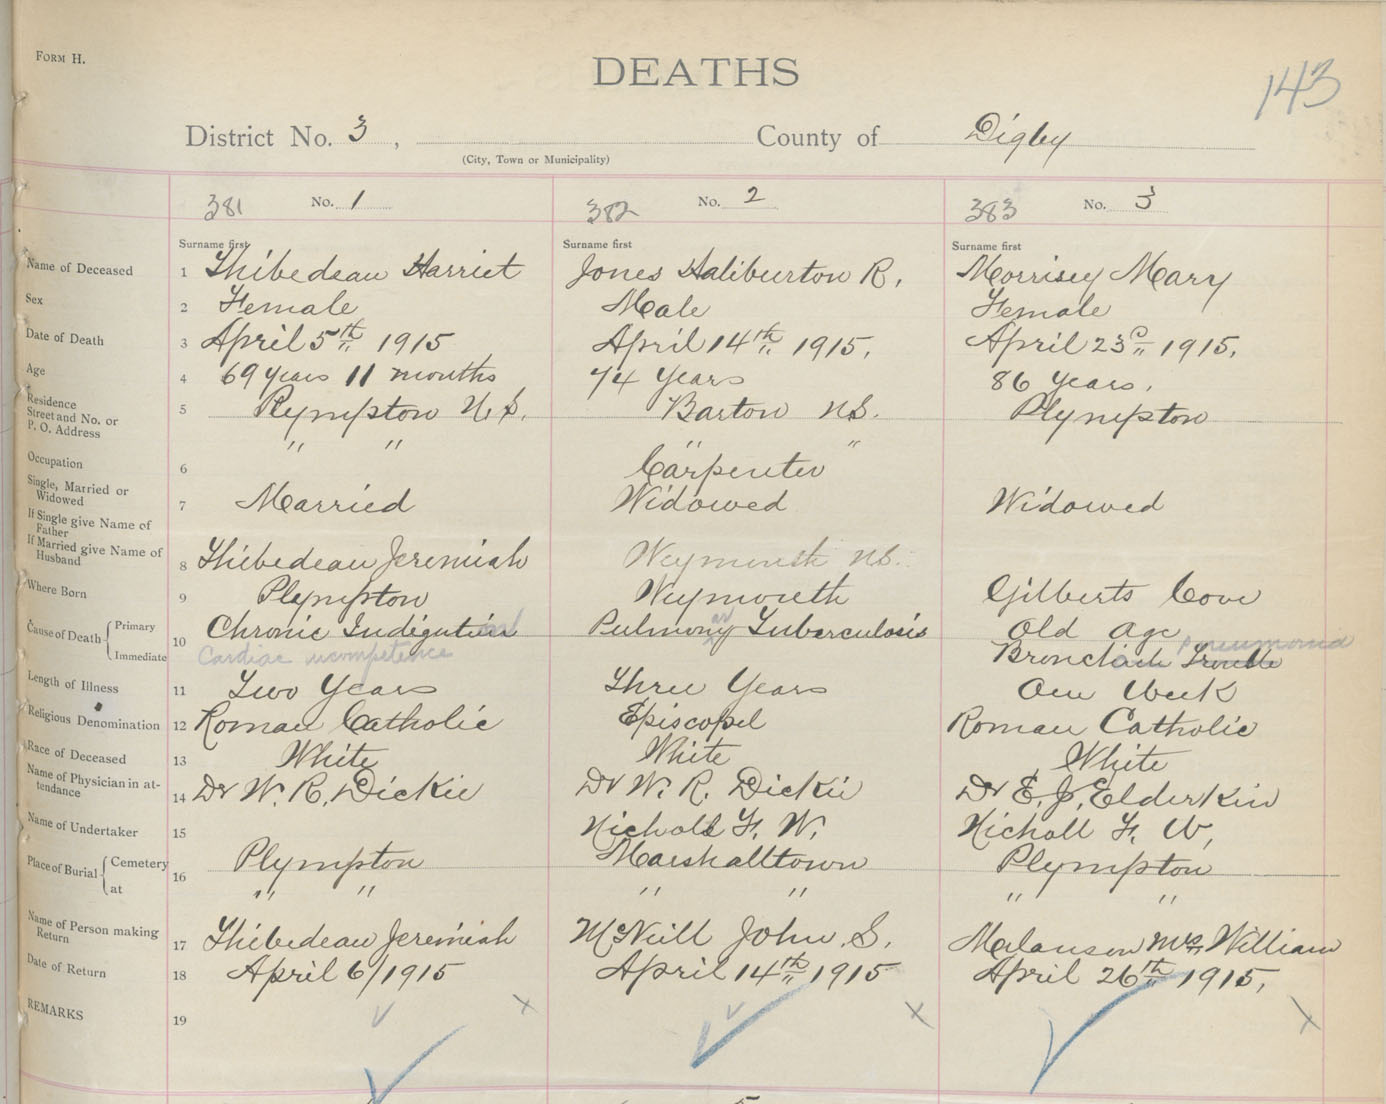 FORM H.
DEATHS
143
District No. 3, County of Digby
(City, Town or Municipality)
381 No. 1 382 No. 2 383 No. 3
Surname first Surname first Surname first
Name of Deceased 1 Thibedeau Harriet Jones Haliburton R. Morrisey Mary
Sex 2 Female Male Female
Date of Death 3 April 5th 1915 April 14th 1915. April 23d 1915.
Age 4 69 years 11 months 74 Years 86 Years.
Residence Street and No. or P. O. Address 5 Plympton N.S. Barton N.S. Plympton
" " " "
Occupation 6 Carpenter
Single, Married or Widowed 7 Married Widowed Widowed
If Single give Name of Father
If Married give Name of Husband 8 Thibedeau Jeremiah Weymouth N.S.
Where Born 9 Plympton Weymouth Gilberts Cove
Cause of Death Primary 10 Chronic Indigestion Pulmonary Tuberculosis Old Age
Immediate Cardiac incompetence Bronchial Trouble pneumonia
Length of Illness 11 Two Years Three Years One Week
Religious Denomination 12 Roman Catholic Episcopel Roman Catholic
Race of Deceased 13 White White White
Name of Physician in attendance 14 Dr W. R. Dickie Dr W. R. Dickie Dr E. J. Elderkin
Name of Undertaker 15 Nicholl F. W. Nicholl F. W.
Place of Burial Cemetery 16 Plympton Marshalltown Plympton
at " " " " " "
Name of Person making Return 17 Thibedeau Jeremiah McNeill John S. Melanson Mrs William
Date of Return 18 April 6/1915 April 14th 1915 April 26th 1915.
REMARKS 19